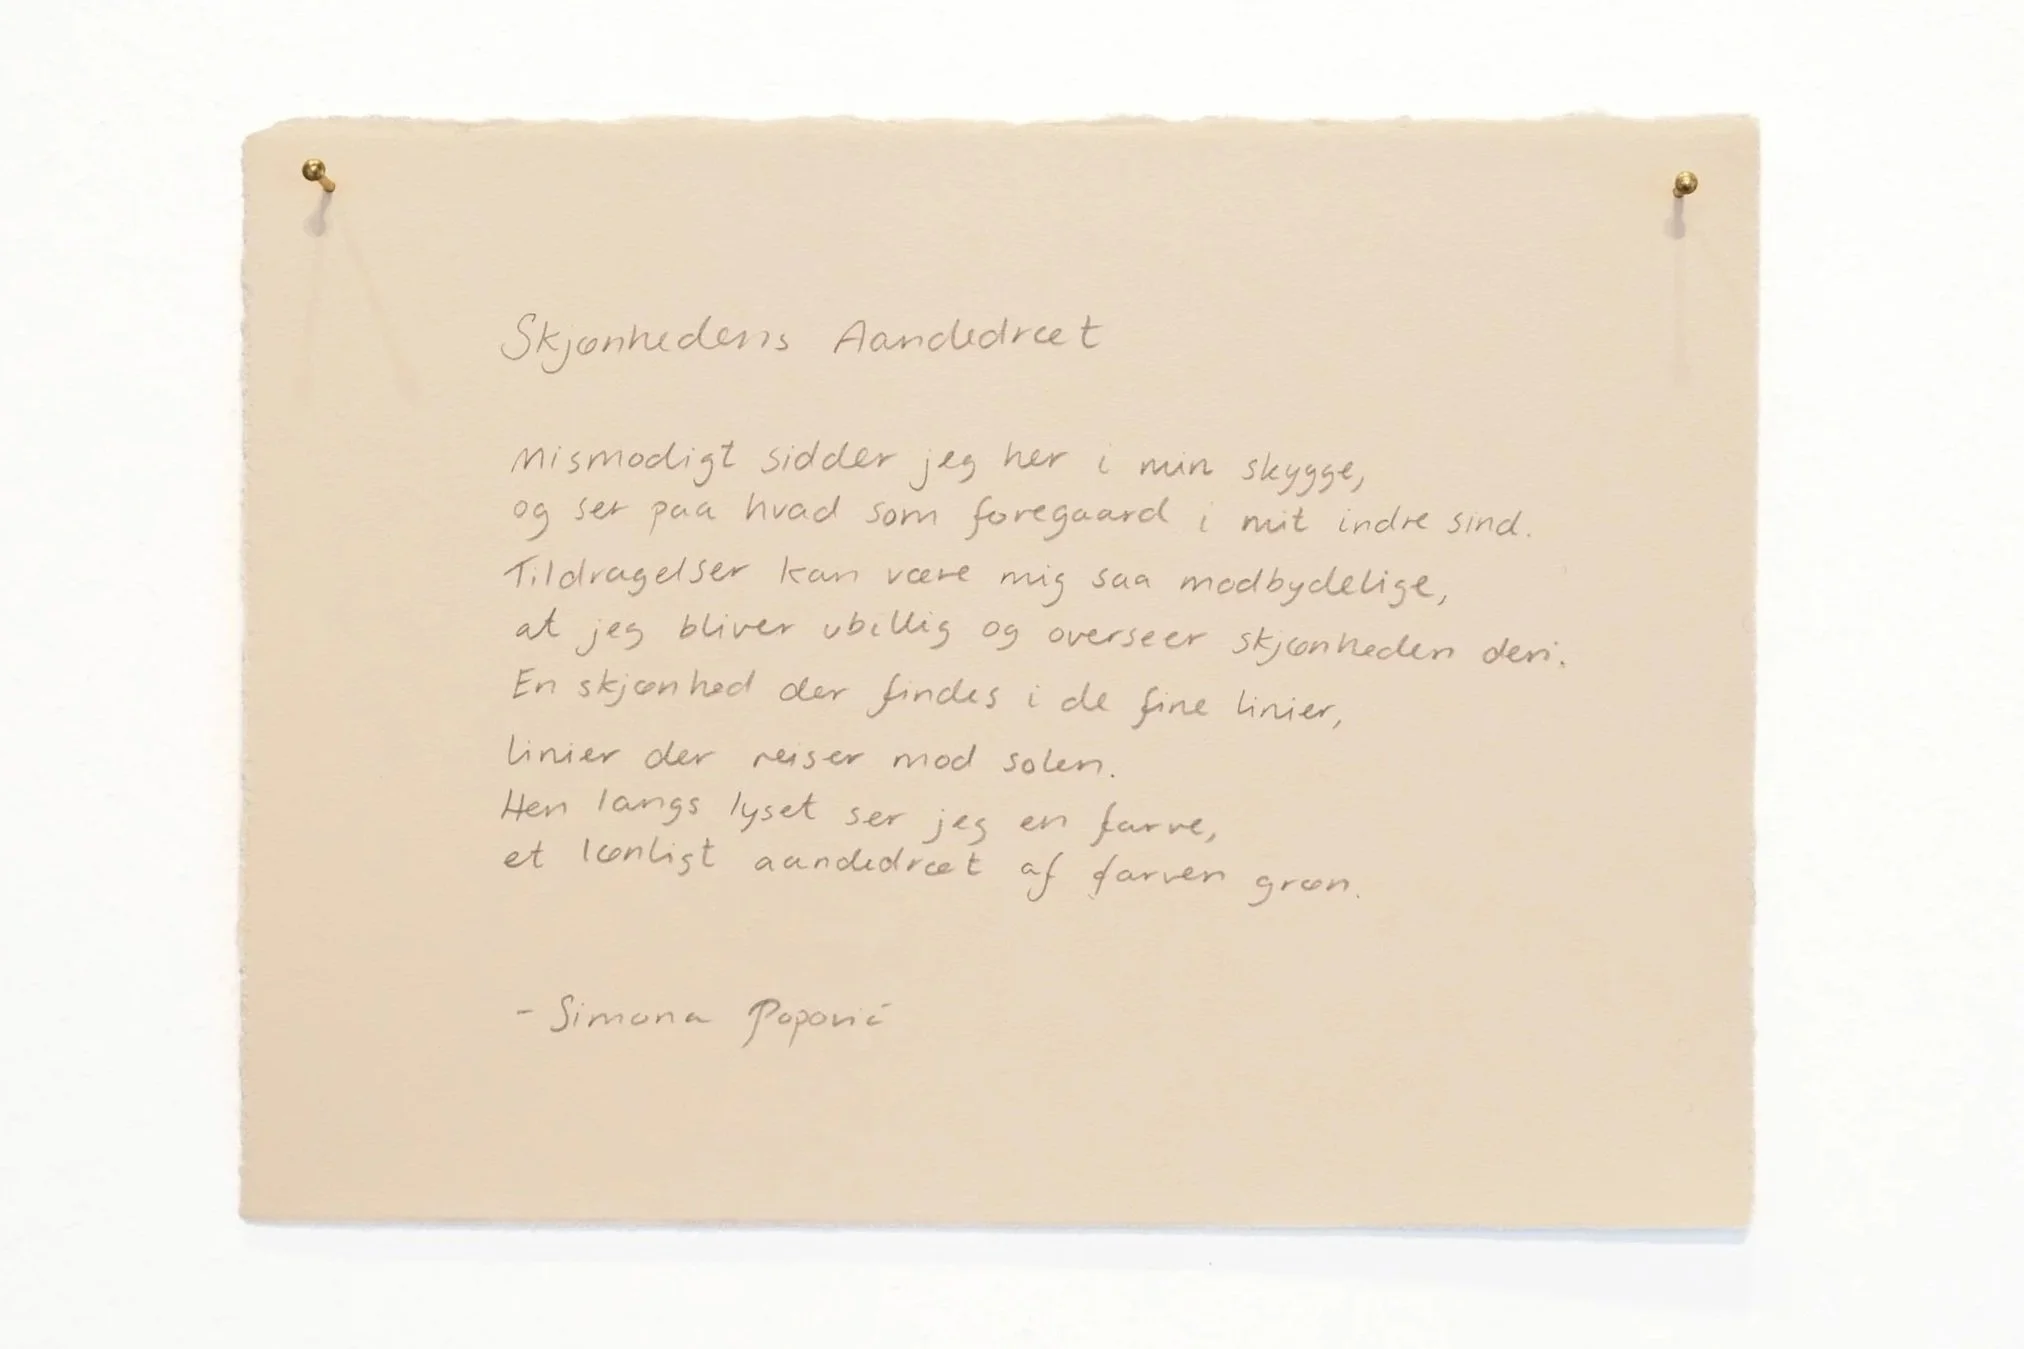 Skjœnhedens Aandedræt
Mismodigt sidder jeg her i min skygge,
og ser paa hvad som foregaard i mit indre sind.
Tildragelser kan være mig saa modbydelige,
at jeg bliver ubillig og overseer skjœnheden deri.
En skjœnhed der findes i de fine linier,
linier der reiser mod solen.
Hen langs lyset ser jeg en farve,
et lœnligt aandedræt af farven grœn.
- Simona Popović